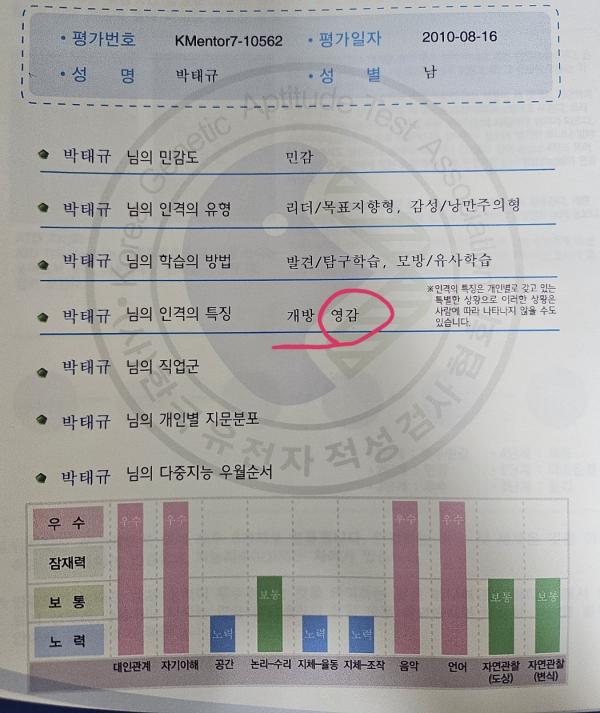 • 평가번호 KMentor7-10562 • 평가일자 2010-08-16
• 성 명 박태규 • 성 별 남
박태규 님의 민감도 민감
박태규 님의 인격의 유형 리더/목표지향형, 감성/낭만주의형
박태규 님의 학습의 방법 발견/탐구학습, 모방/유사학습
박태규 님의 인격의 특징 개방 영감
※인격의 특징은 개인별로 갖고 있는
특별한 상황으로 이러한 상황은
사람에 따라 나타나지 않을 수도
있습니다.
박태규 님의 직업군
박태규 님의 개인별 지문분포
박태규 님의 다중지능 우월순서
Genetic Aptitude Test
유전자적성검사협회
우 수 우수 우수 우수 우수
잠재력
보 통 보통 보통 보통
노 력 노력 노력 노력
대인관계 자기이해 공간 논리-수리 지체-율동 지체-조작 음악 언어 자연관찰 자연관찰
(도상) (변식)